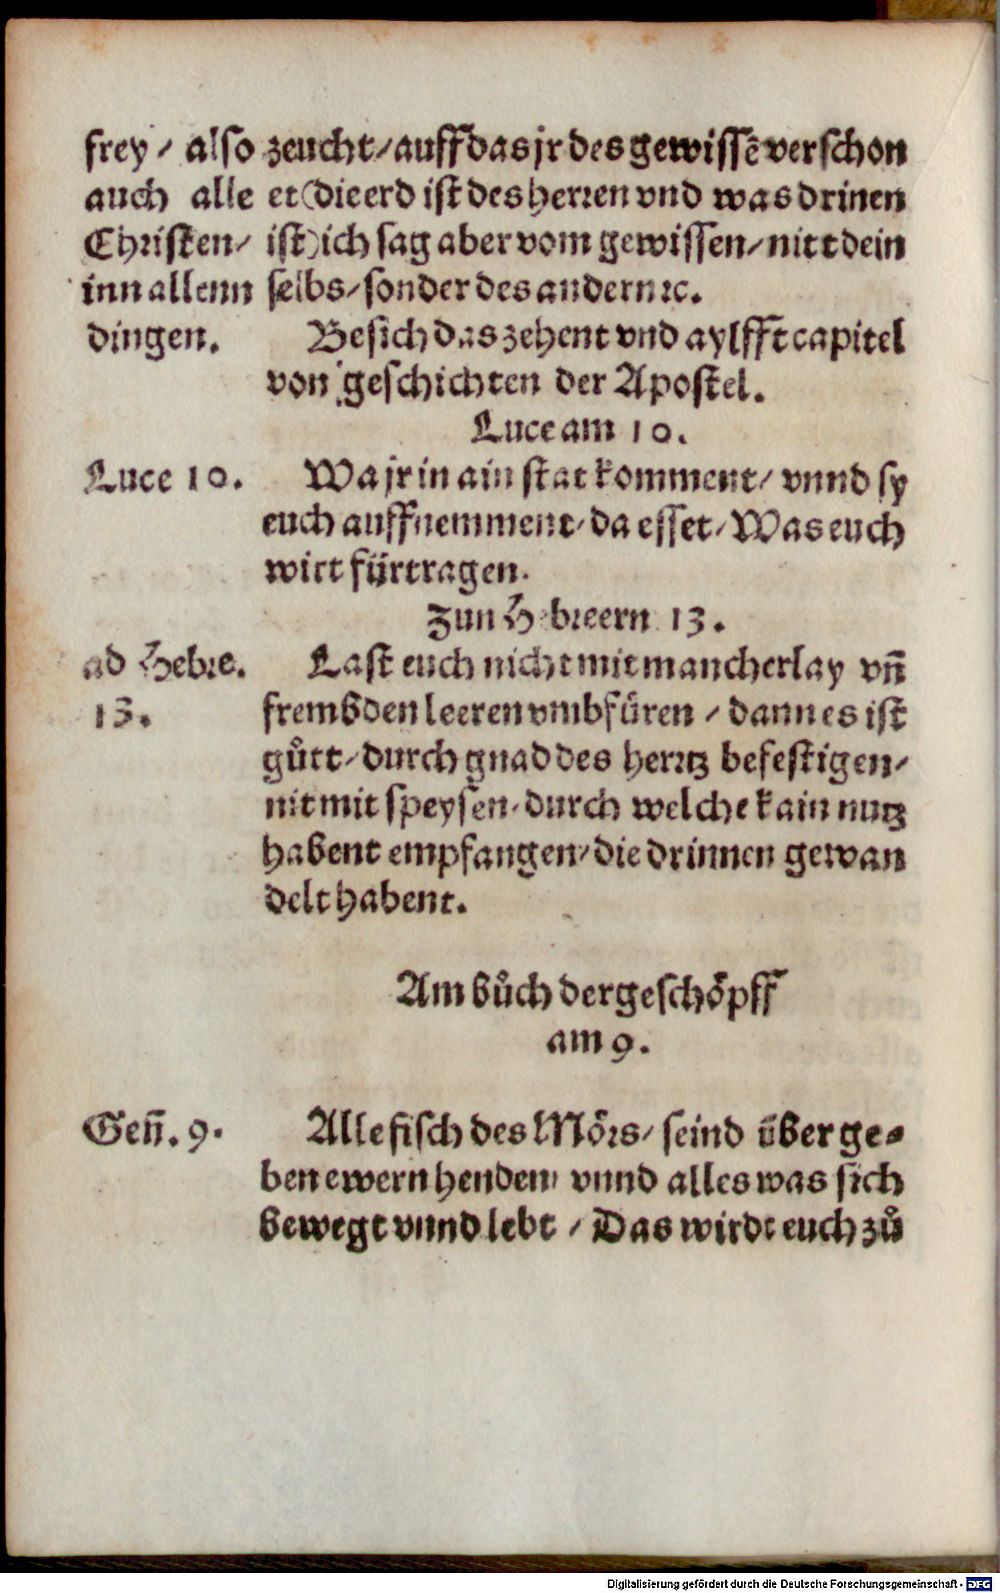 frey / also
auch alle
Christen/
inn allenn
dingen.
zeucht/ auff das jr des gewissē verschon
et (die erd ist des herren vnd was drinen
ist) ich sag aber vom gewissen/ nitt dein
selbs/ sonder des andern ꝛc.
Besich das zehent vnd aylfft capitel
von geschichten der Apostel.
Luce am 10.
Luce 10.
Wa jr in ain stat komment/ vnnd sy
euch auffnemment/ da esset/ Was euch
wirt fürtragen.
Zun Hebreern 13.
ad Hebre.
13.
Last euch nicht mit mancherlay vn̄
frembden leeren vmbfüren / dann es ist
gůtt/ durch gnad des hertz befestigen/
nit mit speysen/ durch welche kain nutz
habent empfangen/ die drinnen gewan
delt habent.
Am bůch der geschöpff
am 9.
Gen̄. 9.
Alle fisch des Mörs/ seind über ge⸗
ben ewern henden/ vnnd alles was sich
bewegt vnnd lebt / Das wirdt euch zů
Digitalisierung gefördert durch die Deutsche Forschungsgemeinschaft - DFG